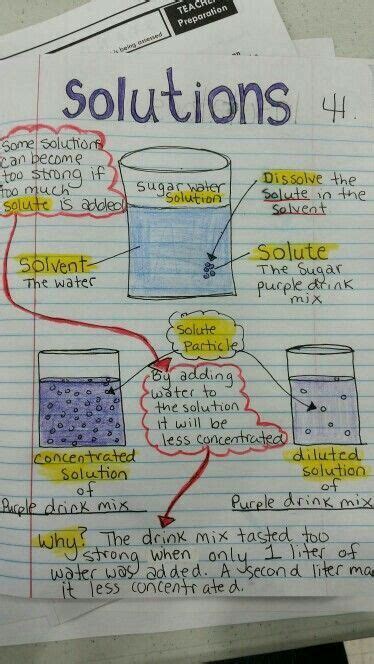 TEACHER
Preparation
is being assessed
Solutions
Some solutions
can become
too strong if
too much
solute is added
sugar water
solution
Dissolve the
solute in the
solvent
Solvent
The water
Solute
The Sugar
purple drink
mix
Solute
Particle
By adding
water to
the solution
it will be
less concentrated
concentrated
solution
of
Purple drink mix
diluted
solution
of
Purple drink mix
Why? The drink mix tasted too
strong when only 1 liter of
water was added. A second liter ma
it less concentrated.